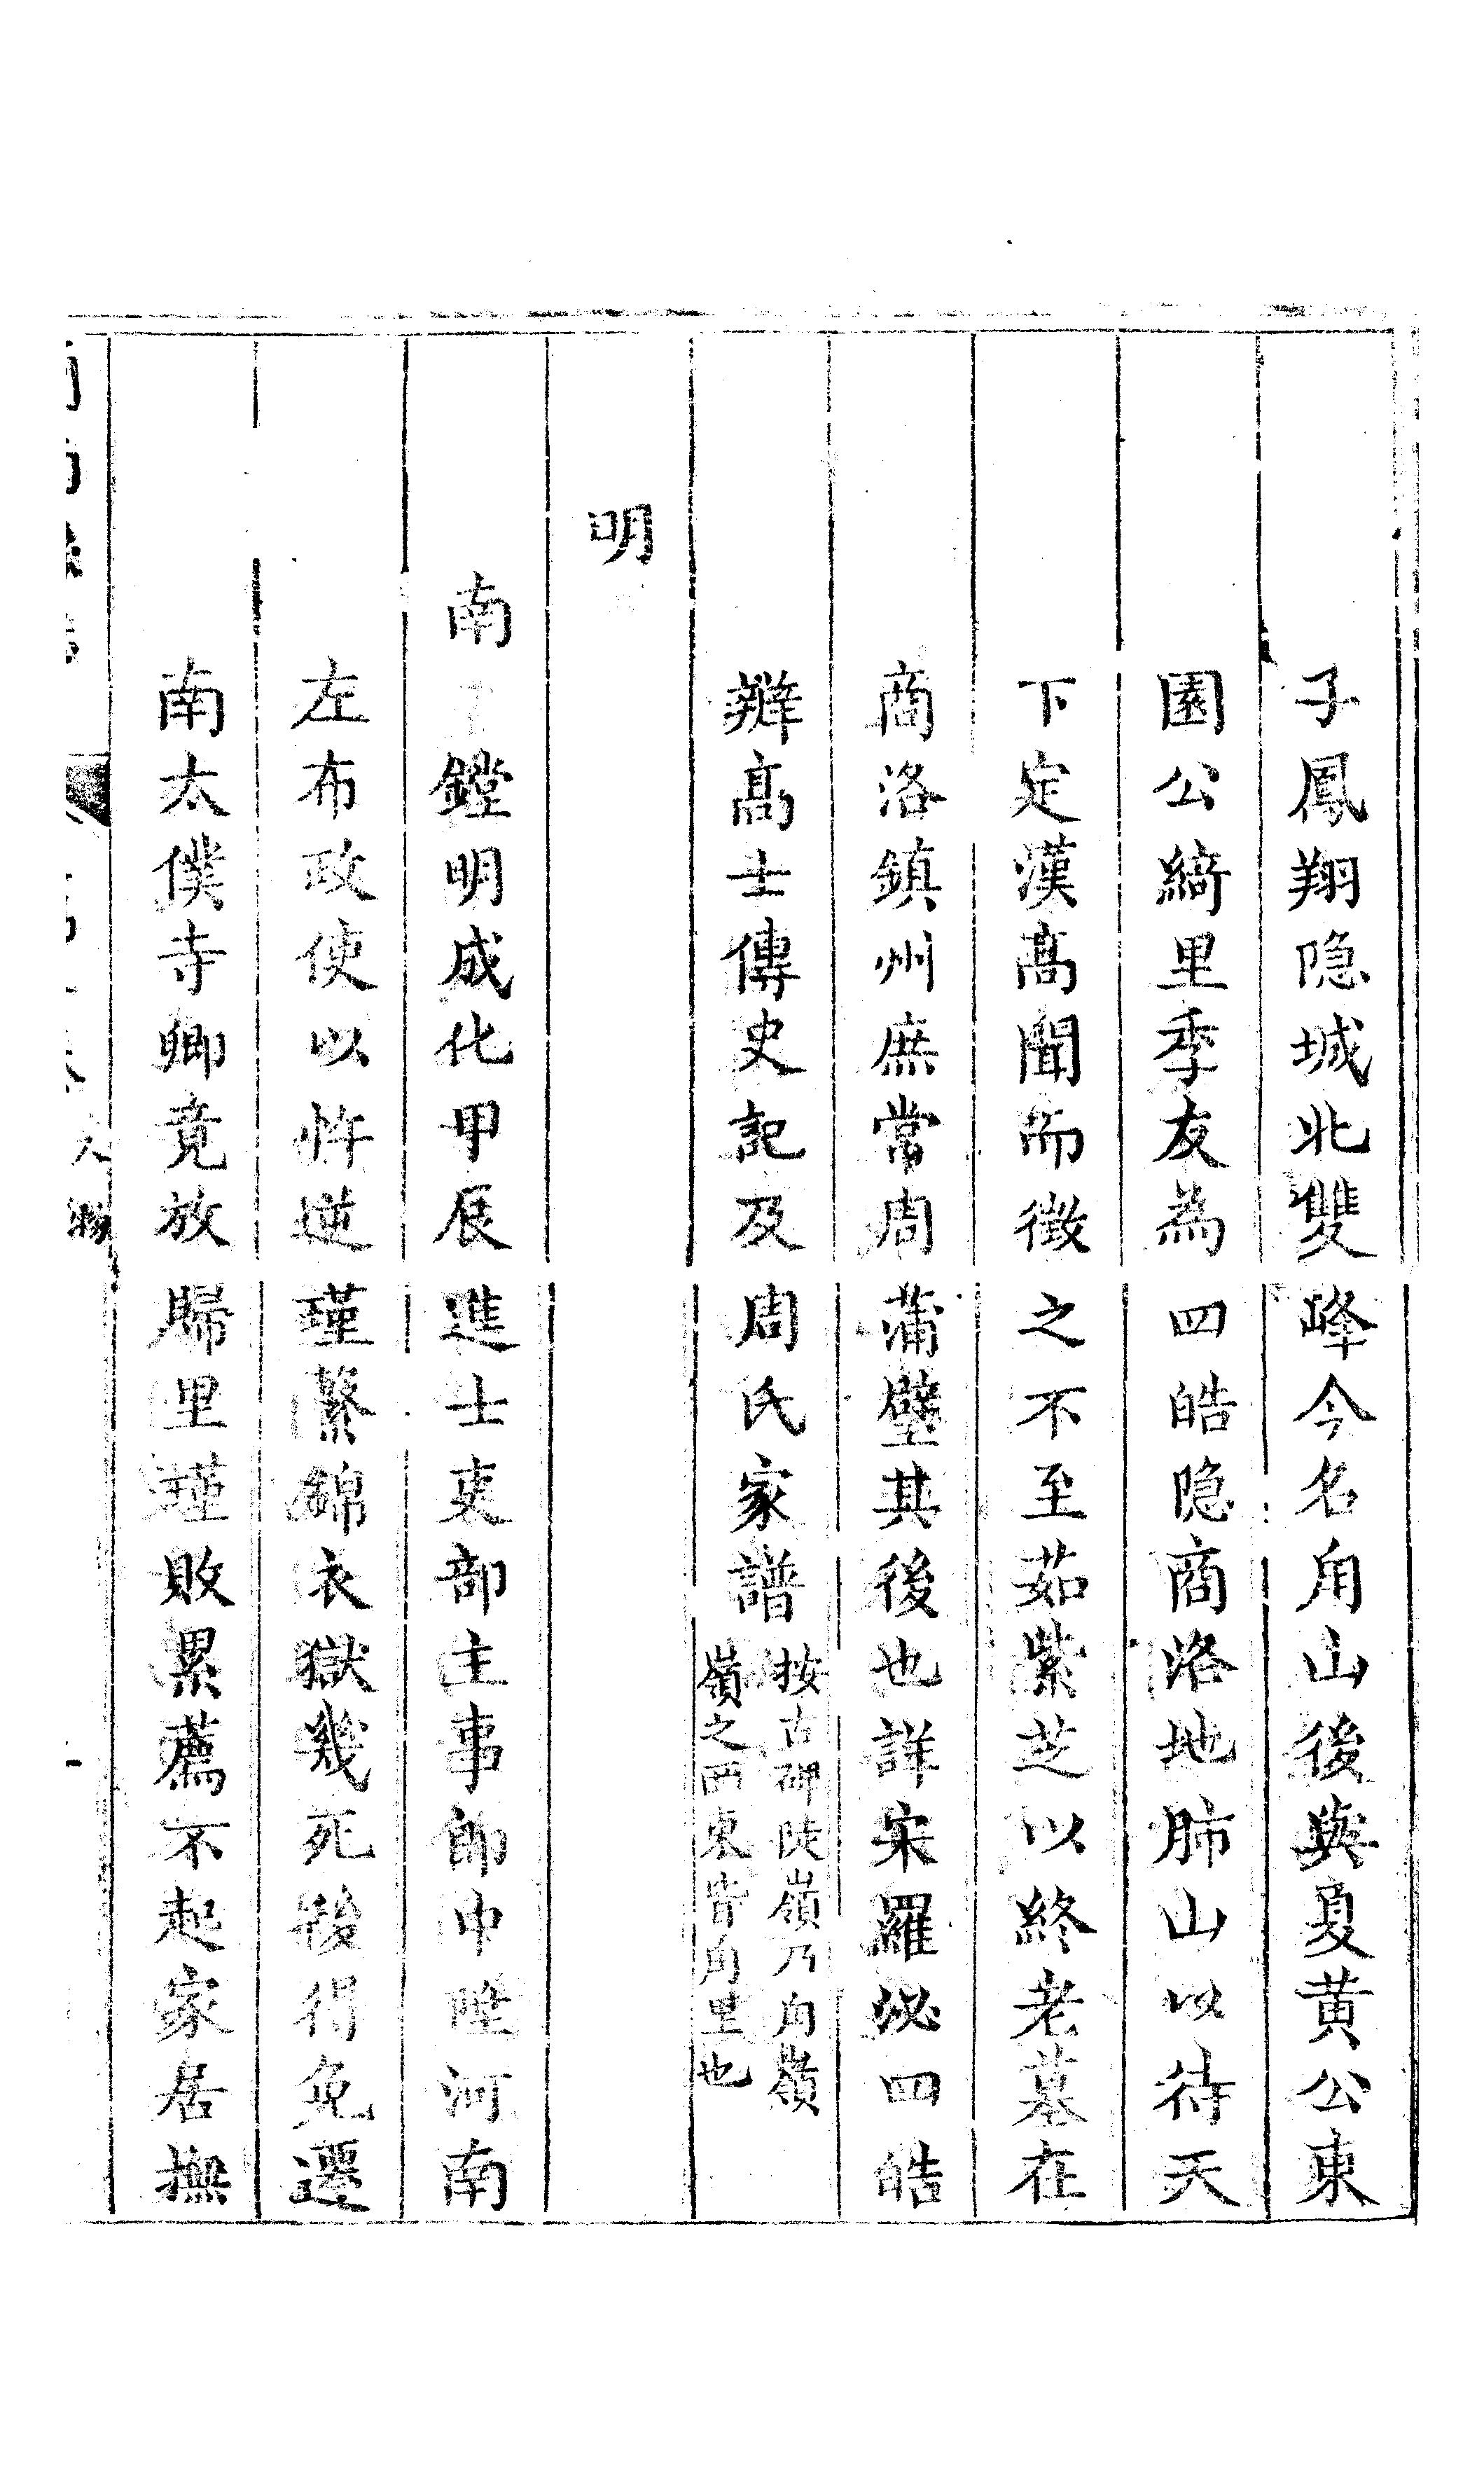 子鳳翔隐城北雙峰今名甪山後與夏黄公東
園公綺里季友為四皓隐商洛地肺山以待天
下定漢髙聞而徵之不至茹紫芝以終老墓在
商洛鎮州庶常周蒲璧其後也詳宋羅泌四皓
辨髙士傳史記及周氏家譜
按古碑陡嶺乃甪嶺
嶺之西東皆甪里也
明
南
鏜明成化甲辰進士吏部主事郎中陞河南
左布政使以忤逆瑾繫錦衣獄幾死後得免遷
南太僕寺卿竟放歸里瑾敗累薦不起家居撫
人物